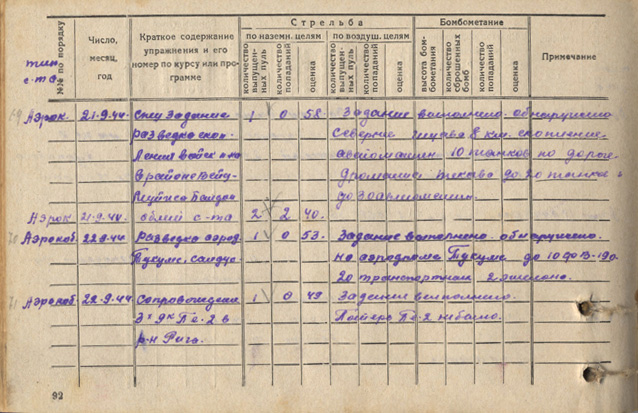 Стрельба
Бомбометание
по наземн. целям
по воздуш. целям
№№ по порядку
тип
с-та
Число,
месяц,
год
Краткое содержание
упражнения и его
номер по курсу или про-
грамме
количество
выпущен-
ных пуль
количество
попаданий
оценка
количество
выпущен-
ных пуль
количество
попаданий
оценка
высота бом-
бометания
количество
сброшенных
бомб
количество
попаданий
оценка
Примечание
Аэрок. 21.9.44. Спец задание 1 0 58. Задание выполнено. обнаружено
разведка скоп- Севернее 8 км. скопление
ления войск п-ка автомашин. 10 танков по дороге
в районе до 20 танков
до 30 автомашин.
Аэрок 21.9.44. облёт с-та 2 2 40.
70 Аэрокоб. 22.9.44 Разведка аэрод. 1 0 53. Задание выполнено. обнаружено
Тукумс, на аэродроме Тукумс до 10 ФВ-190.
20 транспортных 2 эшелона.
71 Аэрокоб. 22.9.44 Сопровождение 1 0 49 Задание выполнено.
Пе-2 в Потерь Пе-2 не было.
р-н Рига.
92